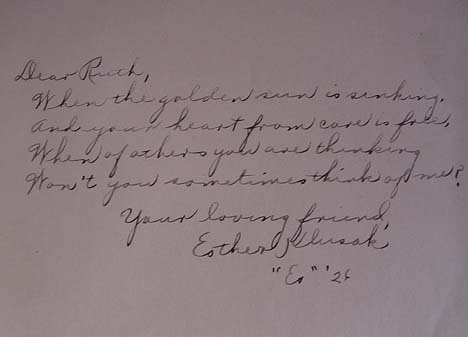 Dear Ruth,
When the golden sun is sinking,
And your heart from care is free,
When of others you are thinking
Won't you sometimes think of me?
Your loving friend,
Esther Klusak
"Es" '26